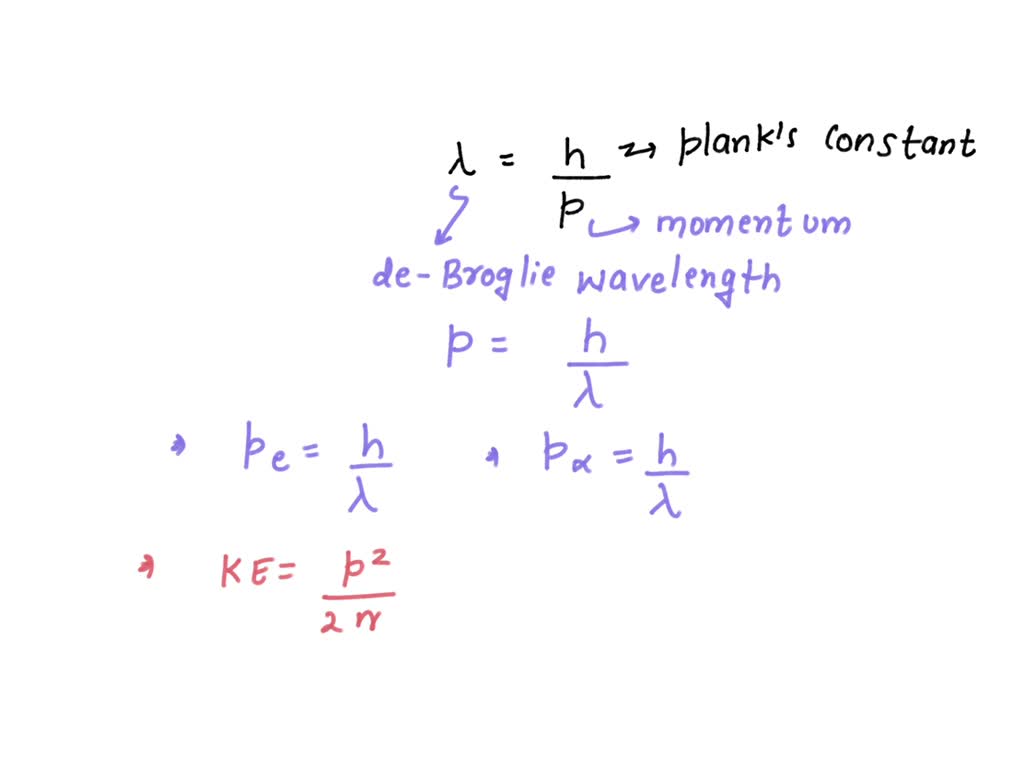 λ = h/p → plank's constant
→ momentum
de-Broglie wavelength
p = h/λ
→ pe = h/λ → pα = h/λ
→ KE = p²/2m